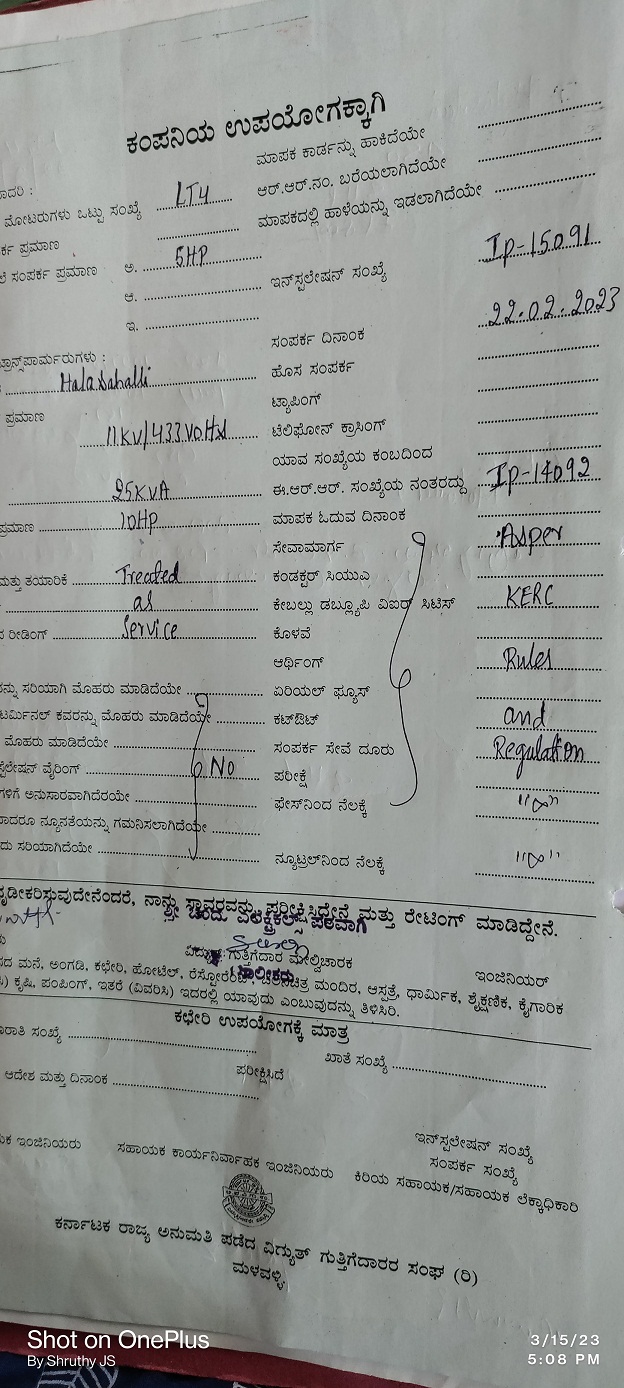 ಕಂಪನಿಯ ಉಪಯೋಗಕ್ಕಾಗಿ
ಮಾಪಕ ಕಾರ್ಡನ್ನು ಹಾಕಿದೆಯೇ
ಮೋಟರುಗಳು ಒಟ್ಟು ಸಂಖ್ಯೆ LT4 ಆರ್.ಆರ್.ನಂ. ಬರೆಯಲಾಗಿದೆಯೇ
ಪ್ರಮಾಣ ಮಾಪಕದಲ್ಲಿ ಹಾಳೆಯನ್ನು ಇಡಲಾಗಿದೆಯೇ
ಸಂಪರ್ಕ ಪ್ರಮಾಣ ಅ. 5HP
ಆ. ಇನ್‌ಸ್ಟಲೇಷನ್ ಸಂಖ್ಯೆ Ip-15091
ಇ.
ಸಂಪರ್ಕ ದಿನಾಂಕ 22.02.2023
ಹೊಸ ಸಂಪರ್ಕ
ಪ್ರಮಾಣ ಟ್ಯಾಪಿಂಗ್
11KV/433 ಟೆಲಿಫೋನ್ ಕ್ರಾಸಿಂಗ್
ಯಾವ ಸಂಖ್ಯೆಯ ಕಂಬದಿಂದ
25KVA ಈ.ಆರ್.ಆರ್. ಸಂಖ್ಯೆಯ ನಂತರದ್ದು Ip-14092
ಪ್ರಮಾಣ 10Hp ಮಾಪಕ ಓದುವ ದಿನಾಂಕ
ಸೇವಾಮಾರ್ಗ Asper
ಮತ್ತು ತಯಾರಿಕೆ Treated ಕಂಡಕ್ಟರ್ ಸಿಯುಎ
as ಕೇಬಲ್ಲು ಡಬ್ಲ್ಯೂಪಿ ವಿಐಆರ್ ಸಿಟಿಸ್ KERC
ರೀಡಿಂಗ್ Service ಕೊಳವೆ
ಆರ್ಥಿಂಗ್ Rules
ಸರಿಯಾಗಿ ಮೊಹರು ಮಾಡಿದೆಯೇ ಏರಿಯಲ್ ಫ್ಯೂಸ್
ಟರ್ಮಿನಲ್ ಕವರನ್ನು ಮೊಹರು ಮಾಡಿದೆಯೇ ಕಟ್‌ಔಟ್ and
ಮೊಹರು ಮಾಡಿದೆಯೇ ಸಂಪರ್ಕ ಸೇವೆ ದೂರು Regulation
ವೈರಿಂಗ್ No ಪರೀಕ್ಷೆ
ಅನುಸಾರವಾಗಿದೆರಯೇ ಫೇಸ್‌ನಿಂದ ನೆಲಕ್ಕೆ
ನ್ಯೂನತೆಯನ್ನು ಗಮನಿಸಲಾಗಿದೆಯೇ
ಸರಿಯಾಗಿದೆಯೇ ನ್ಯೂಟ್ರಲ್‌ನಿಂದ ನೆಲಕ್ಕೆ
ನಾನು ಸ್ಥಾವರವನ್ನು ಪರೀಕ್ಷಿಸಿದ್ದೇನೆ ಮತ್ತು ರೇಟಿಂಗ್ ಮಾಡಿದ್ದೇನೆ.
ವಿದ್ಯುತ್ ಗುತ್ತಿಗೆದಾರ ಮೇಲ್ವಿಚಾರಕ
ಇಂಜಿನಿಯರ್
ಮನೆ, ಅಂಗಡಿ, ಕಛೇರಿ, ಹೋಟೆಲ್, ಮಂದಿರ, ಆಸ್ಪತ್ರೆ, ಧಾರ್ಮಿಕ, ಶೈಕ್ಷಣಿಕ, ಕೈಗಾರಿಕ
ಕೃಷಿ, ಪಂಪಿಂಗ್, ಇತರೆ (ವಿವರಿಸಿ) ಇದರಲ್ಲಿ ಯಾವುದು ಎಂಬುವುದನ್ನು ತಿಳಿಸಿರಿ.
ಕಛೇರಿ ಉಪಯೋಗಕ್ಕೆ ಮಾತ್ರ
ಸಂಖ್ಯೆ ಖಾತೆ ಸಂಖ್ಯೆ
ಪರೀಕ್ಷಿಸಿದೆ
ಆದೇಶ ಮತ್ತು ದಿನಾಂಕ
ಇನ್‌ಸ್ಟಲೇಷನ್ ಸಂಖ್ಯೆ
ಸಂಪರ್ಕ ಸಂಖ್ಯೆ
ಇಂಜಿನಿಯರು ಸಹಾಯಕ ಕಾರ್ಯನಿರ್ವಾಹಕ ಇಂಜಿನಿಯರು ಕಿರಿಯ ಸಹಾಯಕ/ಸಹಾಯಕ ಲೆಕ್ಕಾಧಿಕಾರಿ
ಕರ್ನಾಟಕ ರಾಜ್ಯ ಅನುಮತಿ ಪಡೆದ ವಿದ್ಯುತ್ ಗುತ್ತಿಗೆದಾರರ ಸಂಘ (ರಿ)
ಮಳವಳ್ಳಿ
Shot on OnePlus
By Shruthy JS
3/15/23
5:08 PM